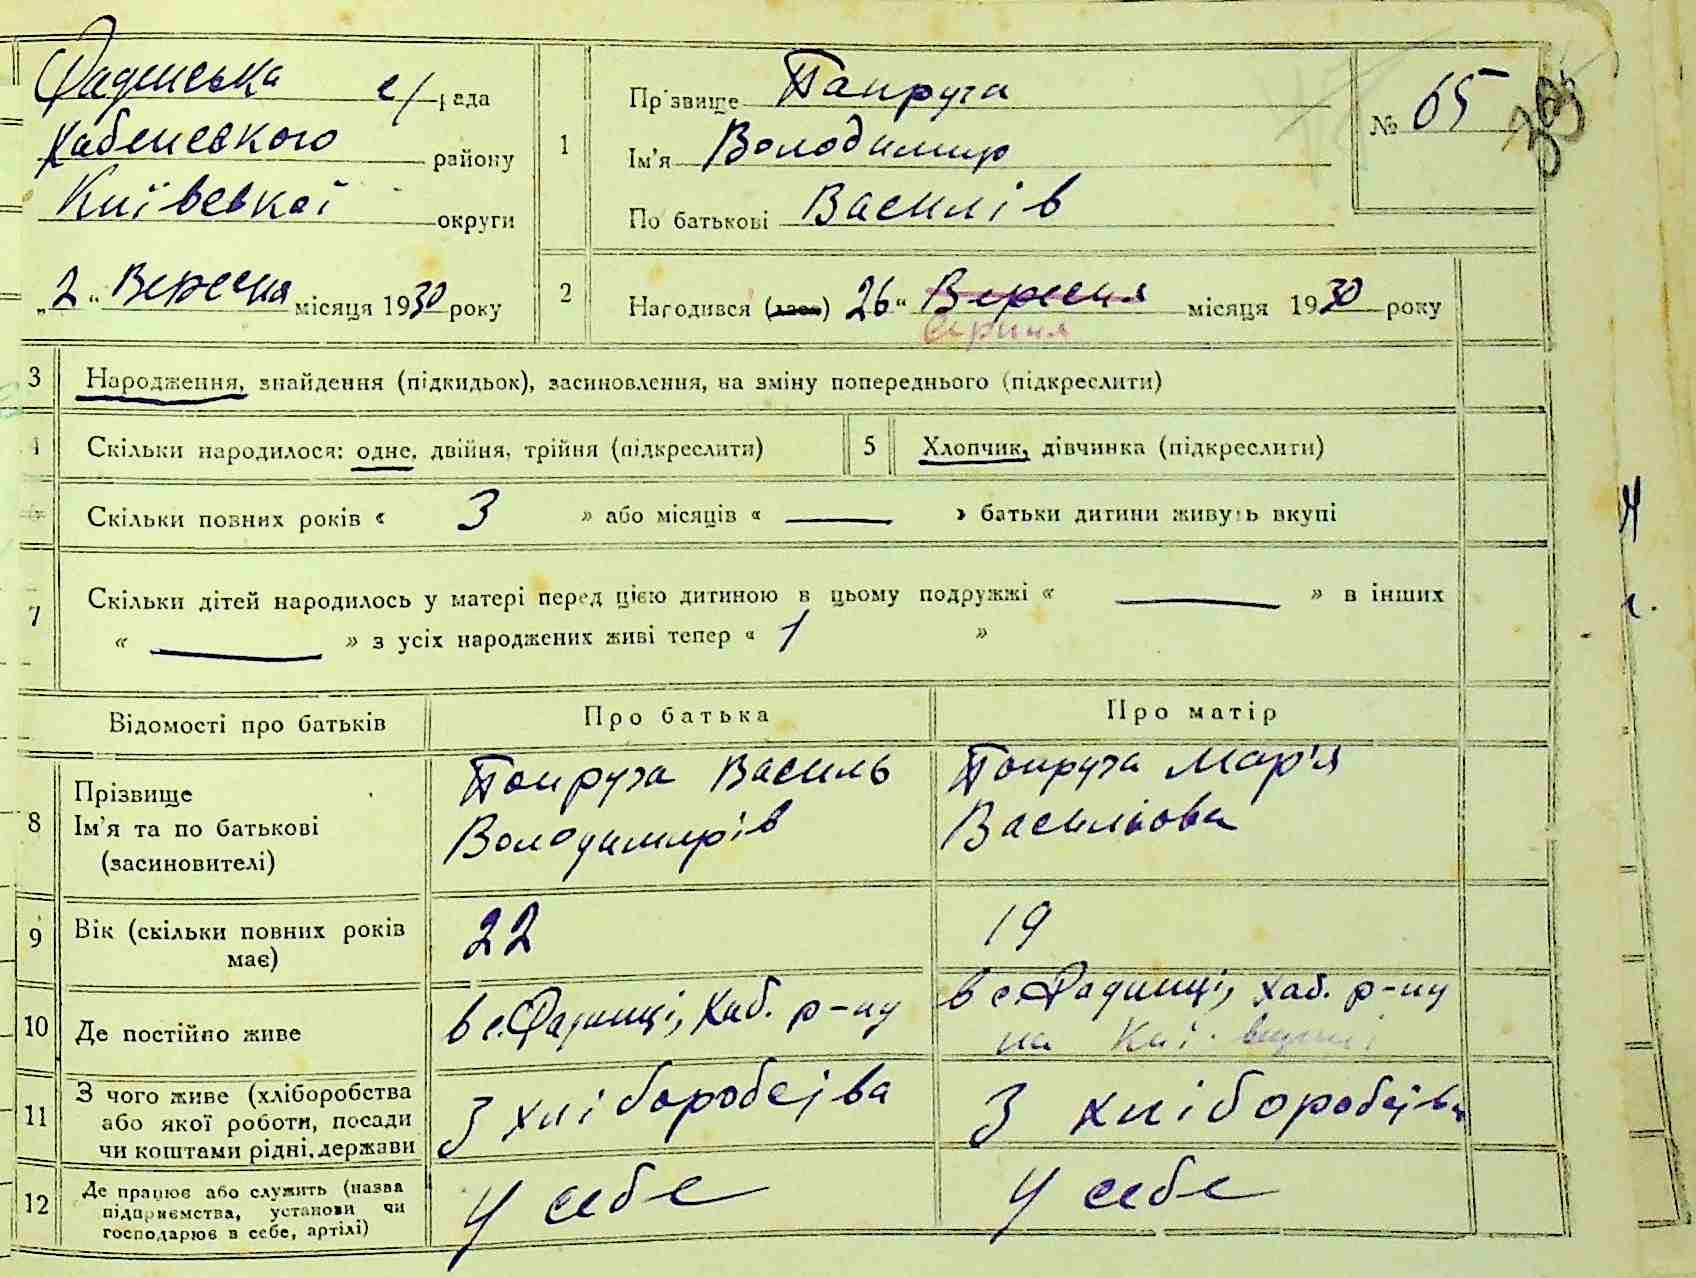 Радинська с/рада
Хабенського району
Київської округи
„2“ Вересня місяця 1930 року
1
Прізвище Папруга
Ім'я Володимир
По батькові Василів
№ 65
2
Народився (лась) 26“ Вересня місяця 1930 року
Серпня
3 Народження, знайдення (підкидьок), засиновлення, на зміну попереднього (підкреслити)
4 Скільки народилося: одне, двійня, трійня (підкреслити)
5 Хлопчик, дівчинка (підкреслити)
Скільки повних років « 3 » або місяців « — » батьки дитини живуть вкупі
7 Скільки дітей народилось у матері перед цією дитиною в цьому подружжі « — » в інших
« — » з усіх народжених живі тепер « 1 »
Відомості про батьків
Про батька
Про матір
8 Прізвище
Ім'я та по батькові
(засиновителі)
Попруга Василь
Володимирів
Попруга Мар'я
Васильова
9 Вік (скільки повних років
має)
22
19
10 Де постійно живе
в с. Радинці, Хаб. р-ну
в с. Радинці, Хаб. р-ну
на
11 З чого живе (хліборобства
або якої роботи, посади
чи коштами рідні, держави
З хліборобства
З хліборобства
12 Де працює або служить (назва
підприємства, установи чи
господарює в себе, артілі)
У себе
У себе